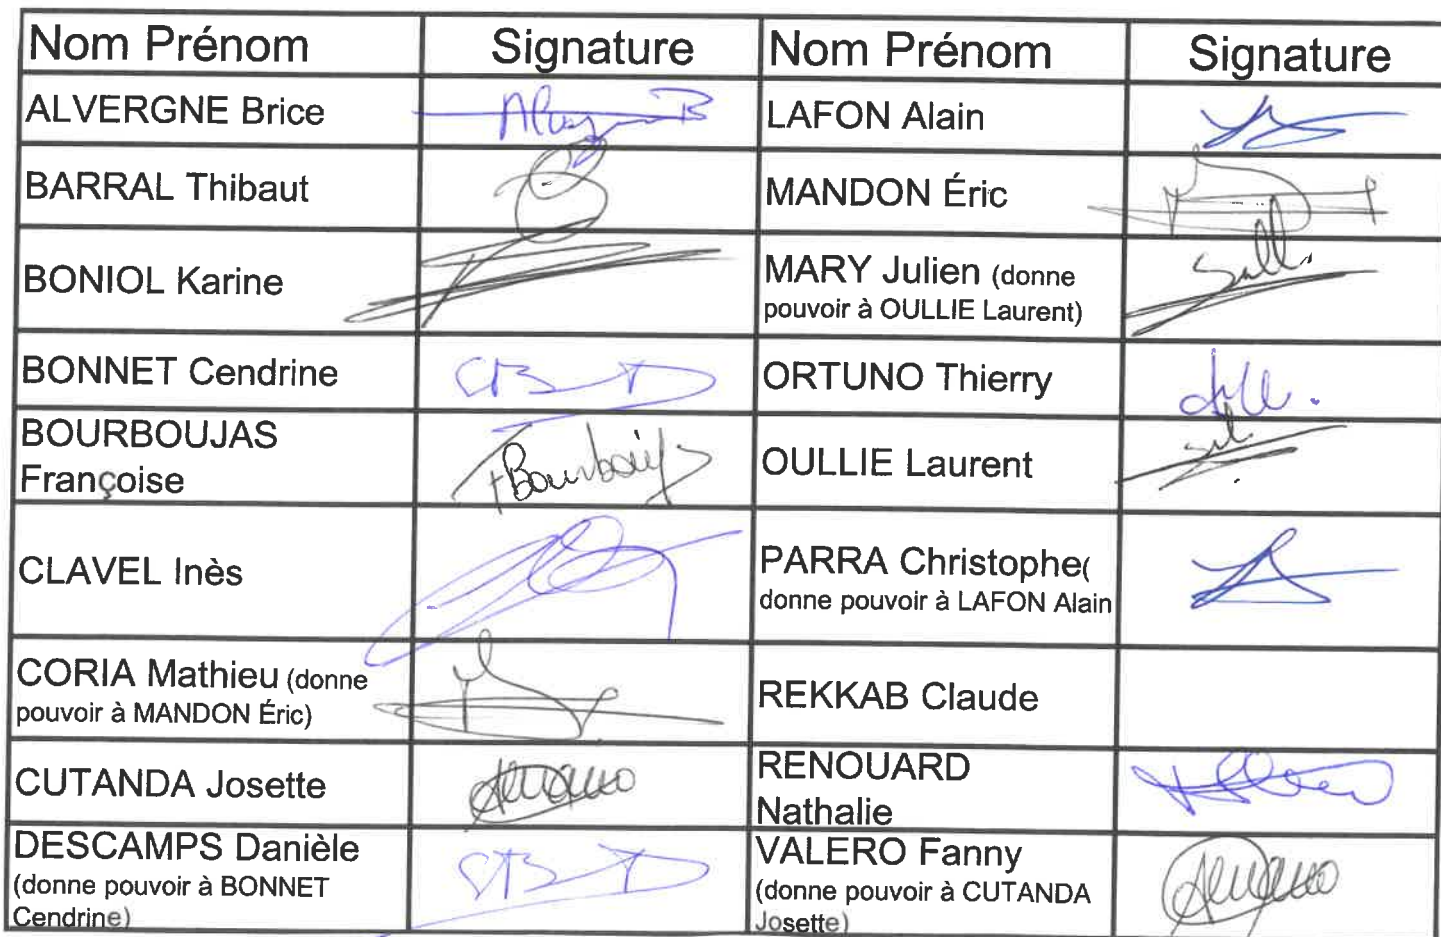 Nom Prénom Signature Nom Prénom Signature
ALVERGNE Brice LAFON Alain
BARRAL Thibaut MANDON Éric
BONIOL Karine MARY Julien (donne
pouvoir à OULLIE Laurent)
BONNET Cendrine ORTUNO Thierry
BOURBOUJAS
Françoise OULLIE Laurent
CLAVEL Inès PARRA Christophe(
donne pouvoir à LAFON Alain
CORIA Mathieu (donne
pouvoir à MANDON Éric) REKKAB Claude
CUTANDA Josette RENOUARD
Nathalie
DESCAMPS Danièle VALERO Fanny
(donne pouvoir à BONNET (donne pouvoir à CUTANDA
Cendrine) Josette)